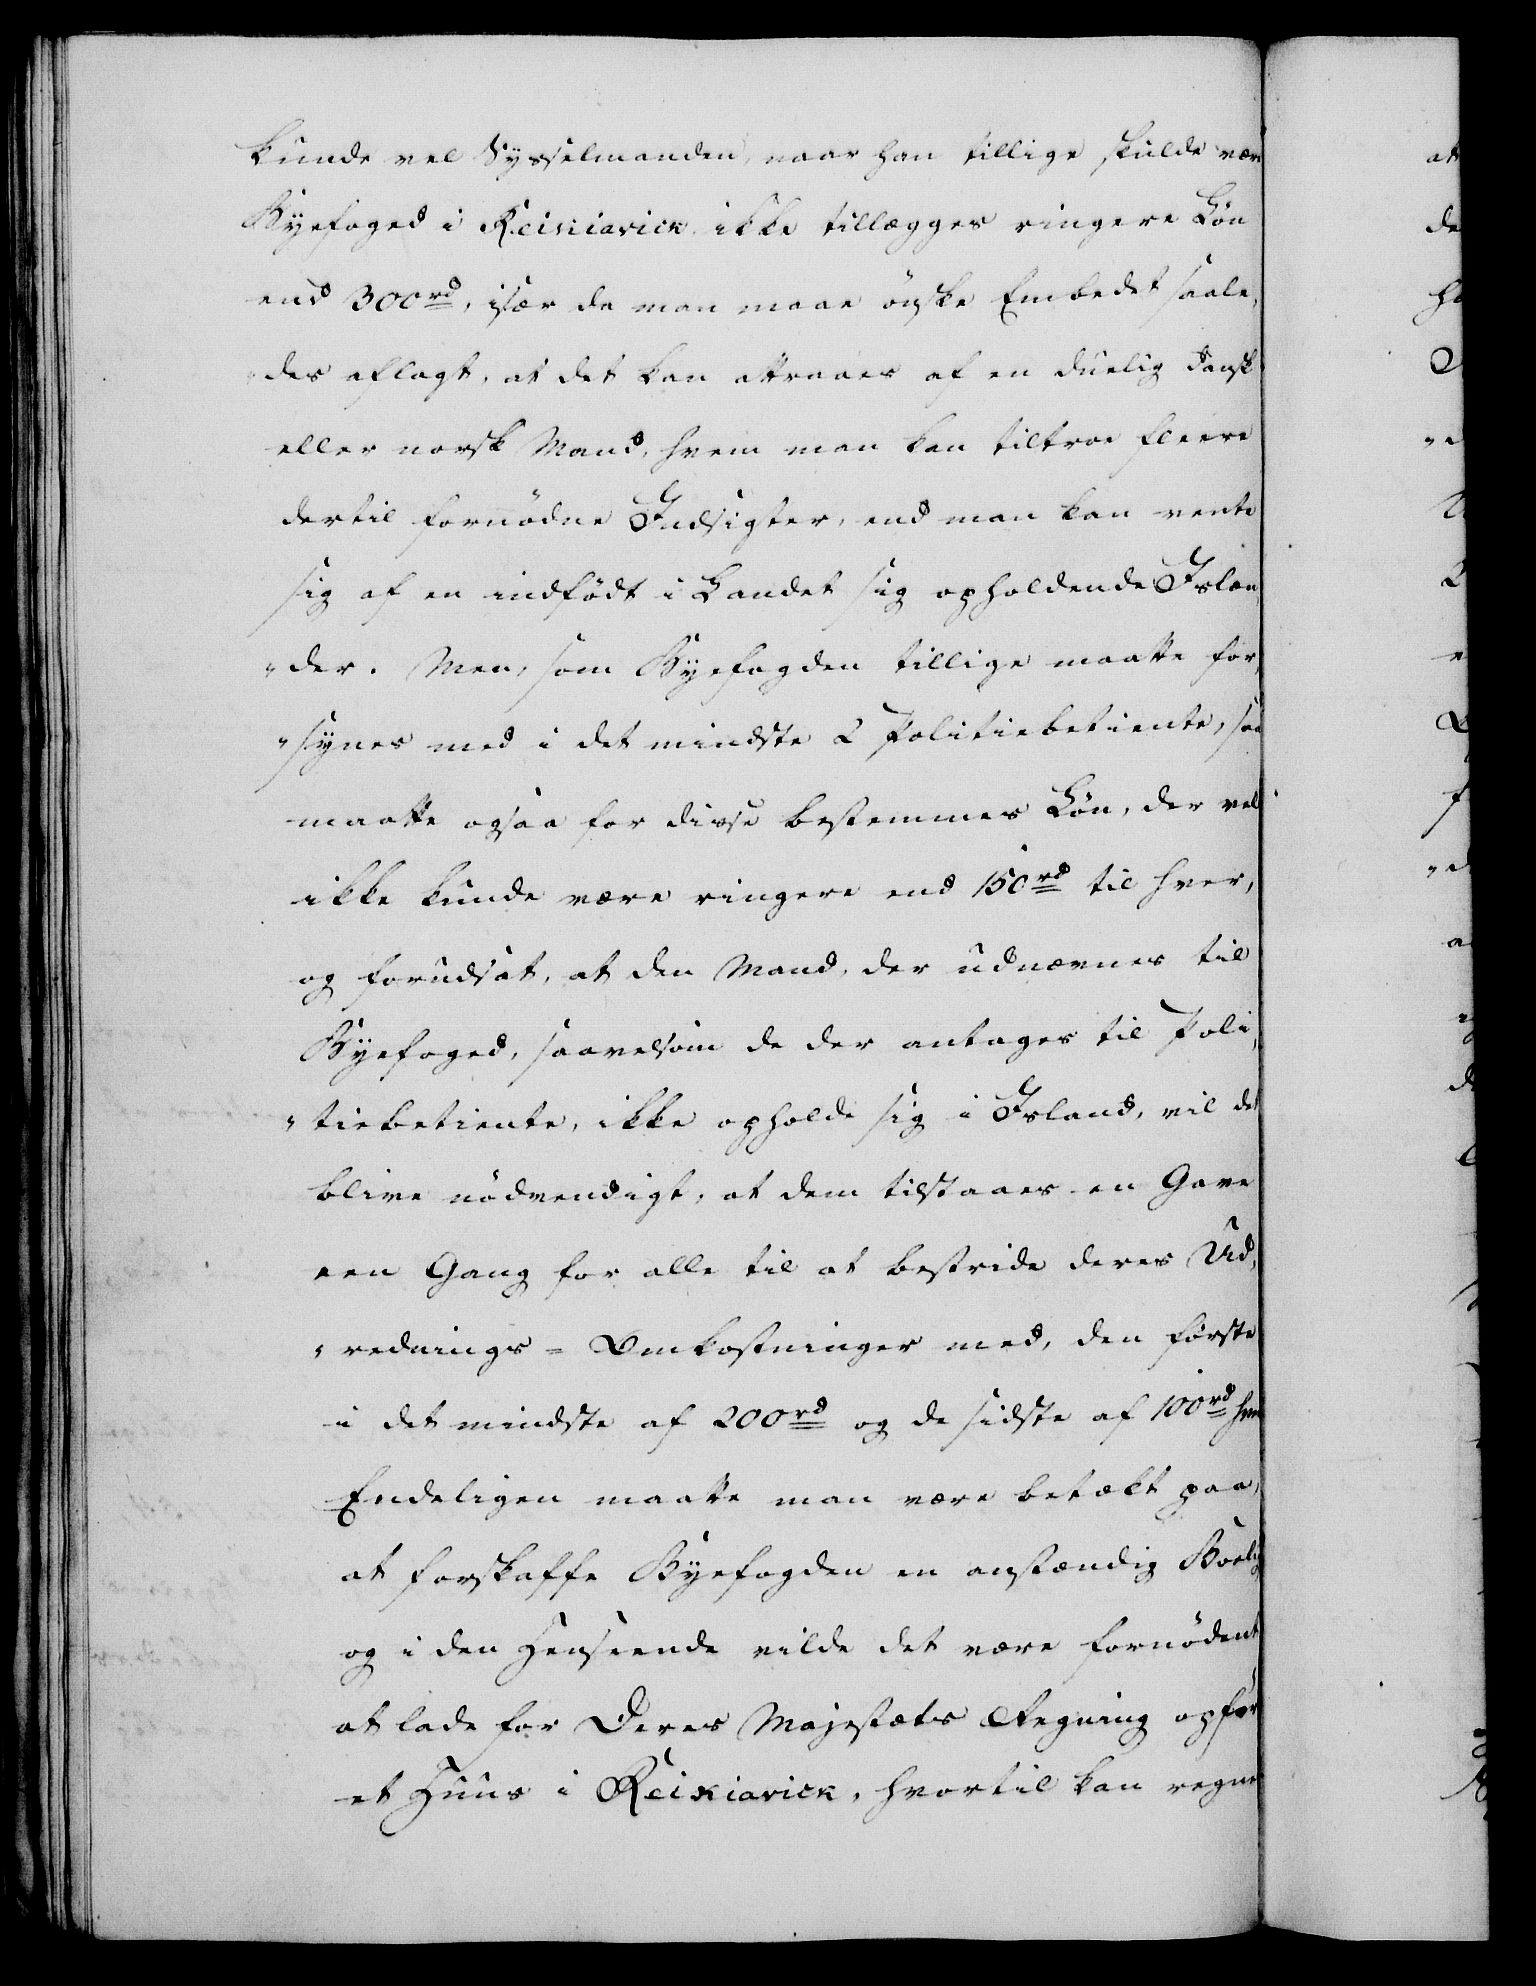 kunde vel Sysselmanden, naar han tillige skulde være
Byefoged i Reikiavick ikke tillægges ringere Løn
end 300 rd, især da man maae ønske Embedet saale„
„des aflagt, at det kan attraaes af en duelig dansk
eller norsk Mand, hvem man kan tiltroe fleere
dertil fornødne Indsigter, end man kan vente
sig af en indfødt i Landet sig opholdende Islæn„
„der. Men, som Byefogden tillige maatte for„
„synes med i det mindste 2 Politiebetiente, saa
maatte ogsaa for disse bestemmes Løn, der vel
ikke kunde være ringere end 150 rd til hver,
og forudsat, at den Mand, der udnævnes til
Byefoged, saavelsom de der antages til Poli„
„tiebetiente, ikke opholde sig i Island, vil det
blive nødvendigt, at dem tilstaaes en Gave
een Gang for alle til at bestride deres Ud„
„rednings-Omkostninger med, den første
i det mindste af 200 rd og de sidste af 100 rd hver
Endeligen maatte man være betækt paa,
at forskaffe Byefogden en anstændig Boelig
og i den Henseende vilde det være fornødent
at lade for Deres Majestæts Regning opføre
et Huus i Reikiavick, hvortil kan regnes